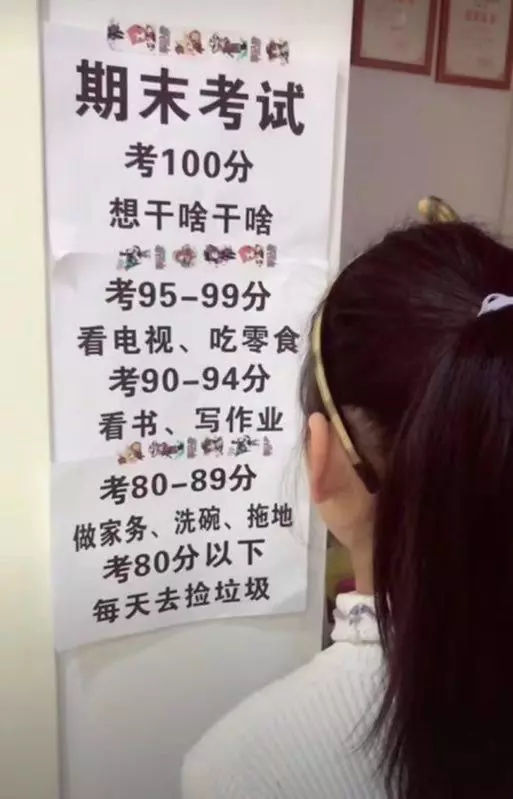 期末考试
考100分
想干啥干啥
考95-99分
看电视、吃零食
考90-94分
看书、写作业
考80-89分
做家务、洗碗、拖地
考80分以下
每天去捡垃圾